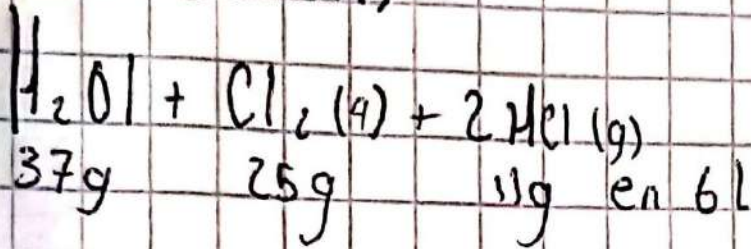 H₂Ol + Cl₂(g) + 2HCl(g)
37g 25g 11g en 6L